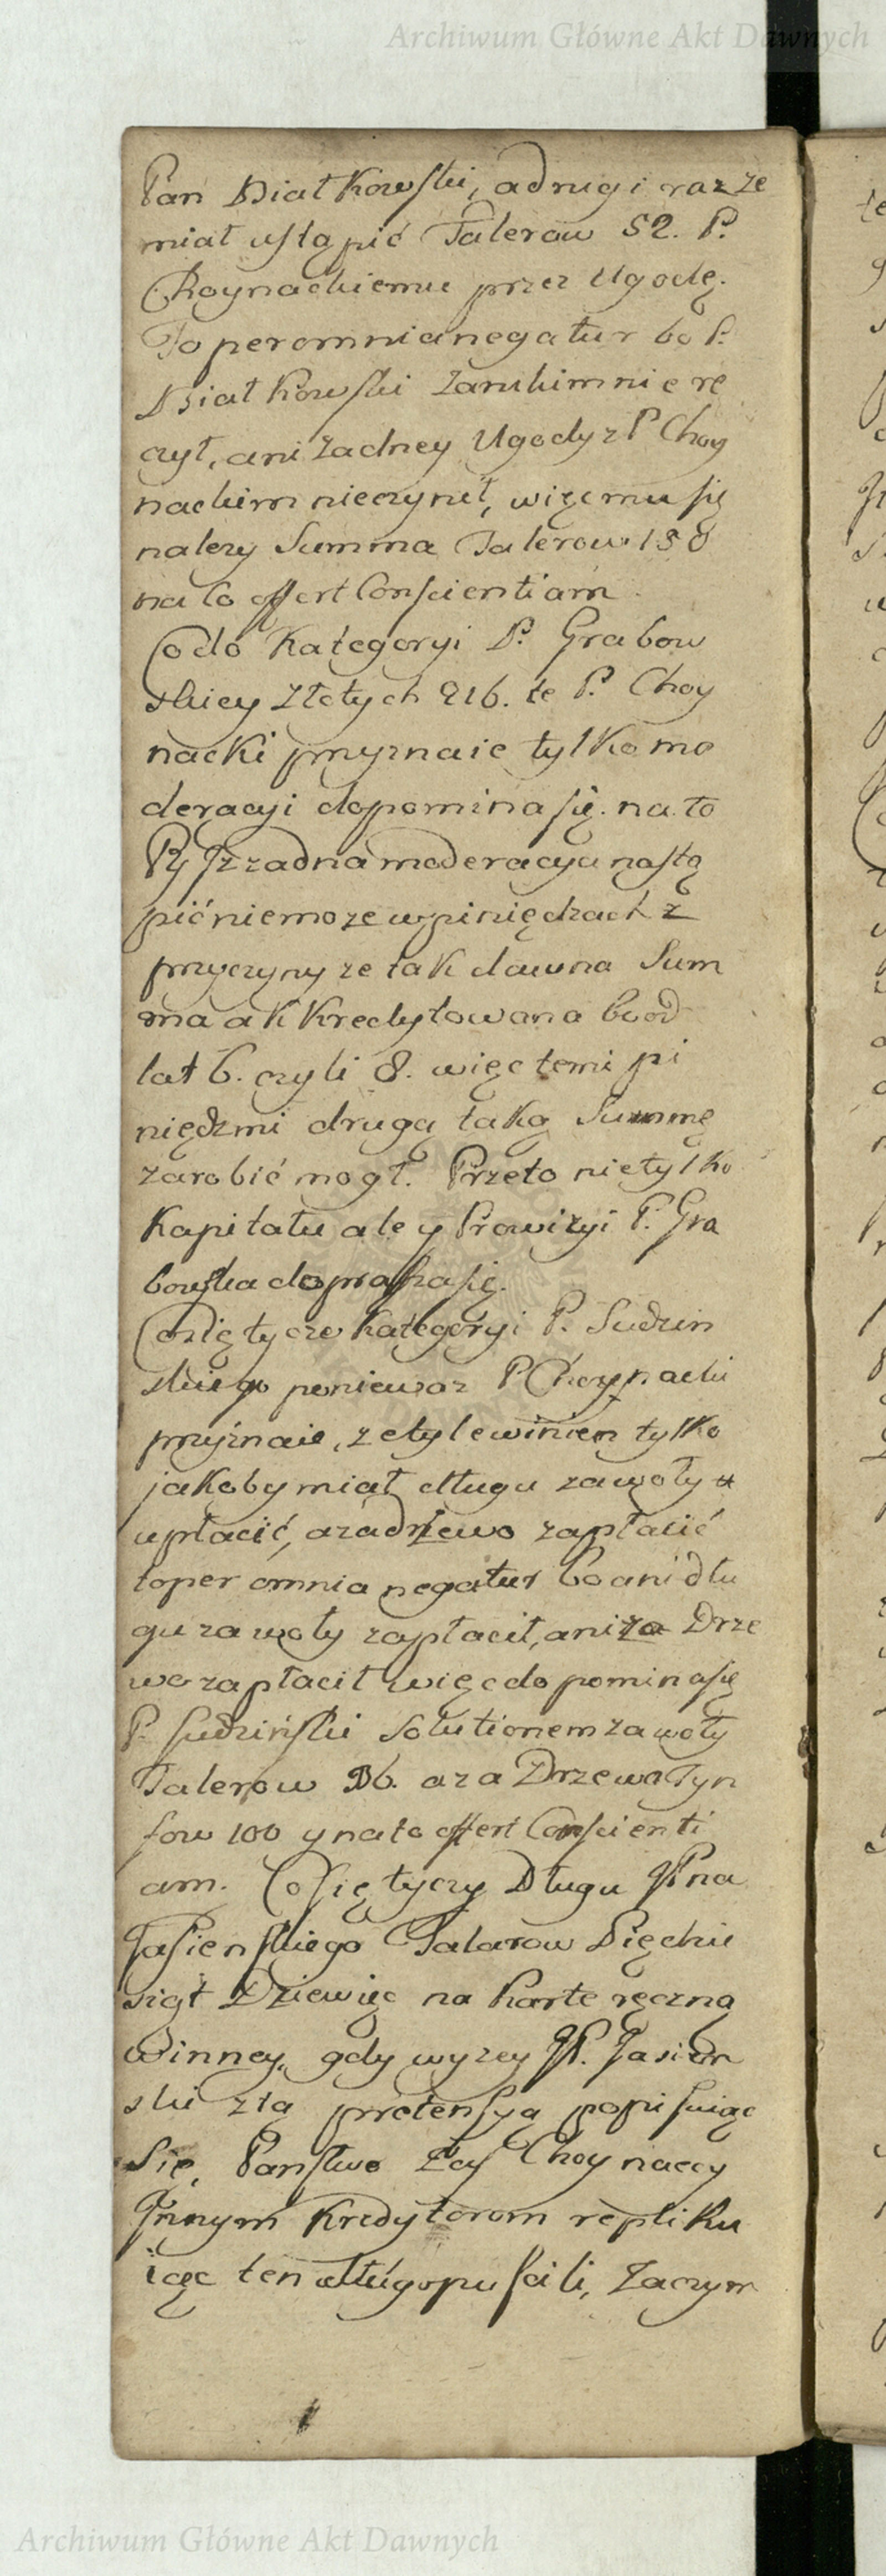 Archiwum Główne Akt Dawnych
Pan Białkowski, a drugi raz ze
miał ustąpić Talerow 52. P.
Choynackiemu przez Ugodę.
To per omnia negatur bo P.
Białkowski za nikim nie rę
czył, ani żadney Ugody z P Choy
nackim nieczynił, więc mu się
nalezy Summa Talerow 158
na to offert Conscientiam
Co do Kategoryi P. Grabow
skiey Złotych 216. te P. Choy
nacki przyznaie tylko mo
deracyi dopomina się. na to
żadna moderacya nastą
pić niemoze w piniędzach z
przyczyny ze tak dawna Sum
ma kredytowana bo od
lat 6. czyli 8. więc temi pi
niędzmi drugą taką Summę
zarobić mogł. Przeto nietylko
Kapitału ale y Prowizyi P. Gra
bowska doprasza się.
Co się tycze Kategoryi P. Sudzin
skiego poniewaz P Choynacki
przyznaie, ze tyle winien tylko
jakoby miał długu za woły
upłacić, a za drzewo zapłacić
to per omnia negatur bo ani dłu
gu za woły zapłacił, ani za Drze
wo zapłacił więc dopomina się
P. Sudziński Solutionem za woły
Talerow 36. a za Drzewo Tyn
fow 100 y na to offert Conscienti
am. Co się tyczy Długu JPna
Jasienskiego Talarow Pięćdzie
siąt Dziewięc na karte ręczną
Winney, gdy wyzey JP. Jasien
ski z tą pretensyą popisuiąc
Się, Państwo Choynaccy
Jnnym Kredytorom repliku
iąc ten dług opuscili, Zaczym
Archiwum Główne Akt Dawnych